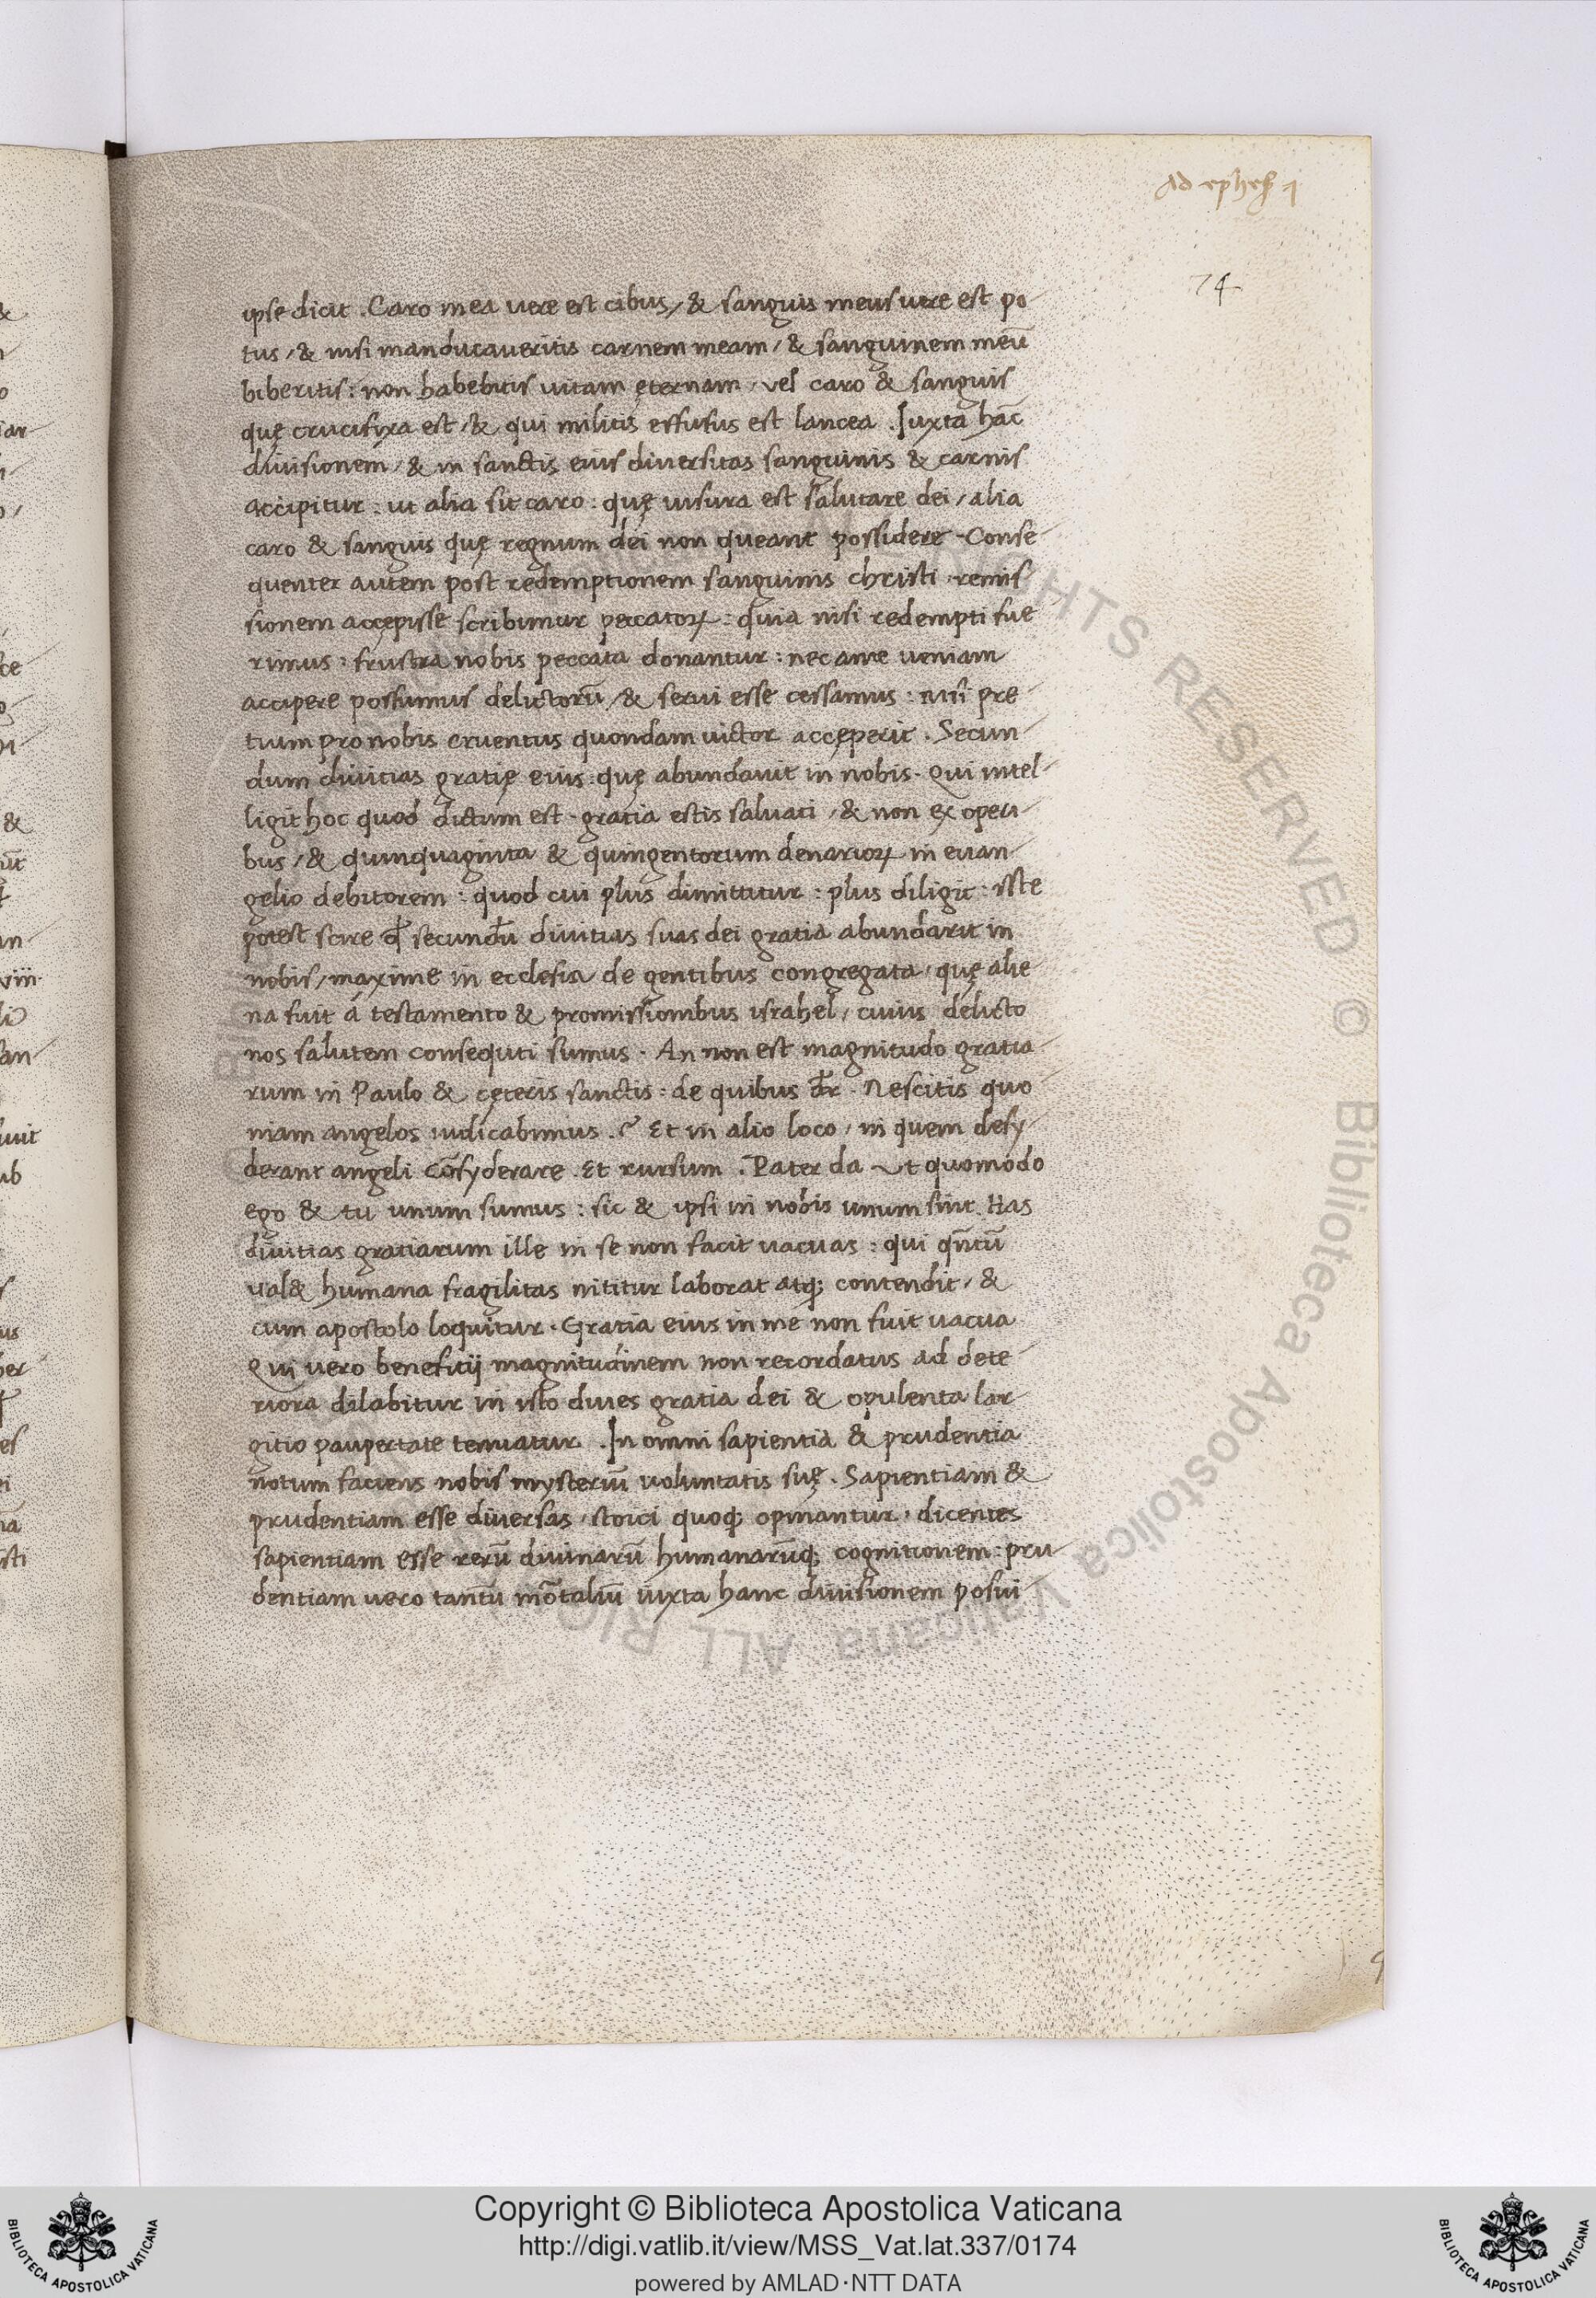 Ad ephes 1
74
ipse dicit . Caro mea vere est cibus / & sanguis meus vere est po-
tus / & nisi manducaveritis carnem meam / & sanguinem meū
biberitis : non habebitis vitam ęternam / vel caro & sanguis
quę crucifixa est / & qui militis effusus est lancea . Juxta hāc
divisionem / & in sanctis eius diversitas sanguinis & carnis
accipitur : ut alia sit caro : quę visura est salutare dei / alia
caro & sanguis quę regnum dei non queant possidere . Conse-
quenter autem post redemptionem sanguinis christi remis-
sionem accepisse scribimur peccatoꝝ : quia nisi redempti fue
rimus : frustra nobis peccata donantur : nec ante veniam
accipere possumus delictorū / & servi esse cessamus : nisi pre-
tium pro nobis cruentus quondam victor accęperit . Secun-
dum divitias gratię eius : quę abundavit in nobis . Qui intel-
ligit hoc quod dictum est . gratia estis salvati / & non ex operi-
bus / & quinquaginta & quingentorum denarioꝝ in evan-
gelio debitorem : quod cui plus dimittitur : plus diligit : iste
potest scire ꝙ secundū divitias suas dei gratia abundarit in
nobis / maxime in ecclesia de gentibus congregata / quę alie-
na fuit á testamento & promissionibus israhel / cuius delicto
nos salutem consequti sumus . An non est magnitudo gratia-
rum in Paulo & cęteris sanctis : de quibus dr̄ . Nescitis quo-
niam angelos iudicabimus .? Et in alio loco / in quem desy-
derant angeli cōsyderare . Et rursum . Pater da ut quomodo
ego & tu unum sumus : sic & ipsi in nobis unum sint . Has
divitias gratiarum ille in se non facit vacuas : qui qn̄tū
val& humana fragilitas nititur laborat atq; contendit / &
cum apostolo loquitur . Gratia eius in me non fuit vacua
Qui vero beneficij magnitudinem non recordatus ad dete-
riora dilabitur in isto dives gratia dei & opulenta lar-
gitio paupertate tenuatur . In omni sapientia & prudentia
notum faciens nobis mysteriū voluntatis suę . Sapientiam &
prudentiam esse diversas / stoici quoq; opinantur / dicentes
sapientiam esse rerū divinarū humanarūq; cognitionem : pru-
dentiam vero tantū mortaliū iuxta hanc divisionem posui-
Copyright © Biblioteca Apostolica Vaticana
http://digi.vatlib.it/view/MSS_Vat.lat.337/0174
powered by AMLAD·NTT DATA